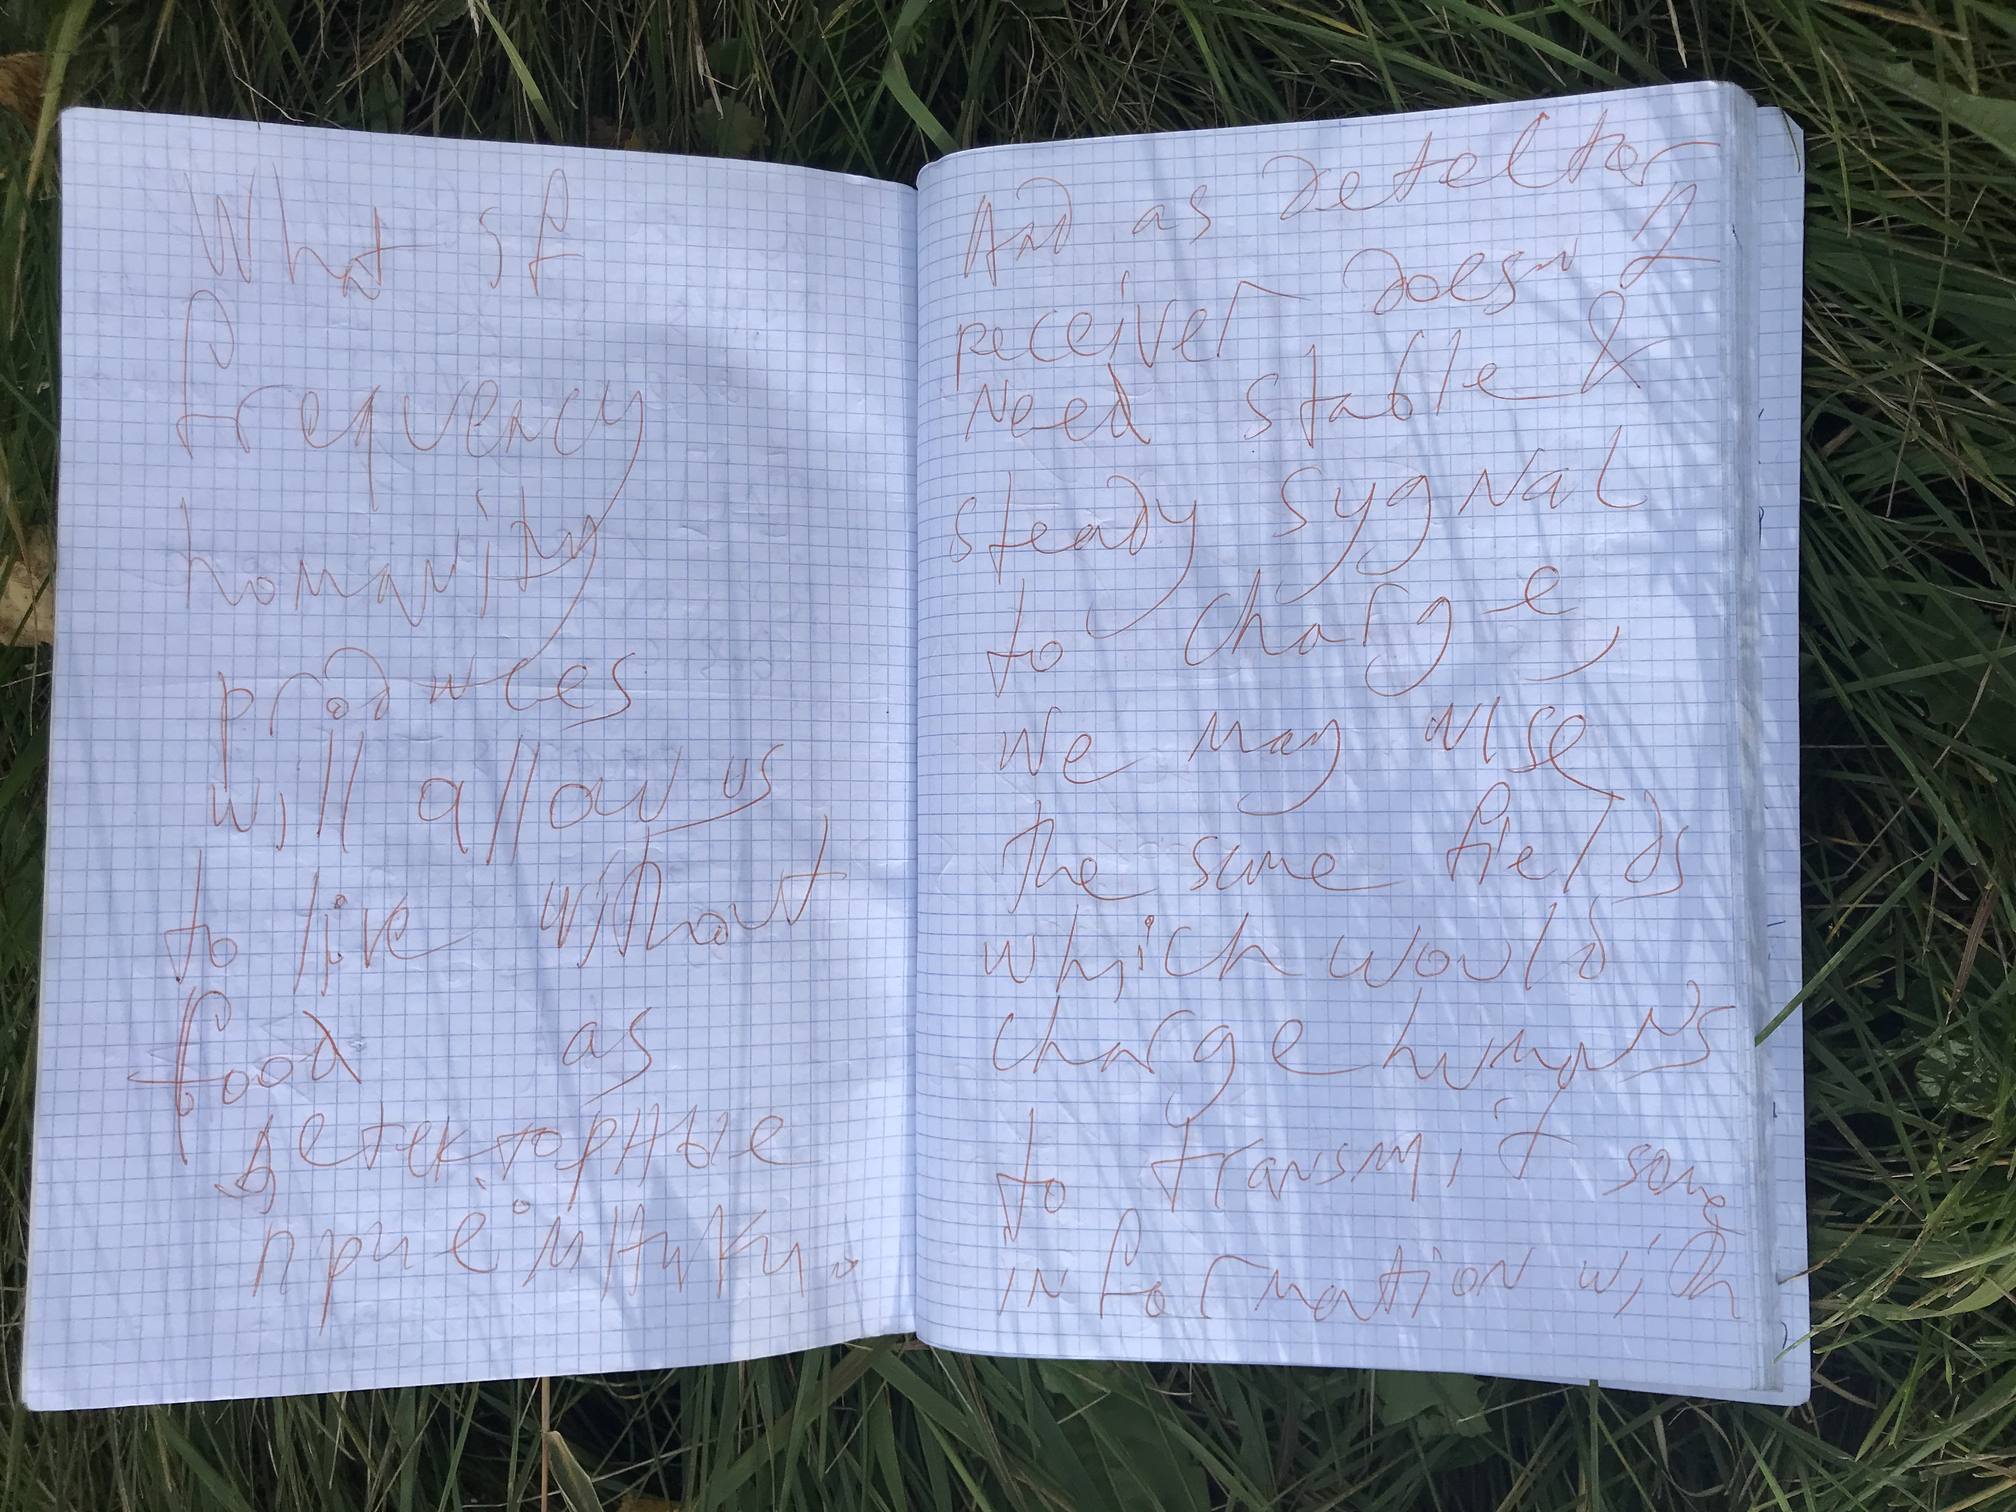 What if
frequency
homanity
produces
will allow us
to live without
food as
детекторные
приёмники.
And as detector
receiver doesn't
need stable &
steady sygnal
to charge,
we may use
the same fields
which would
charge humans
to transmit some
information with